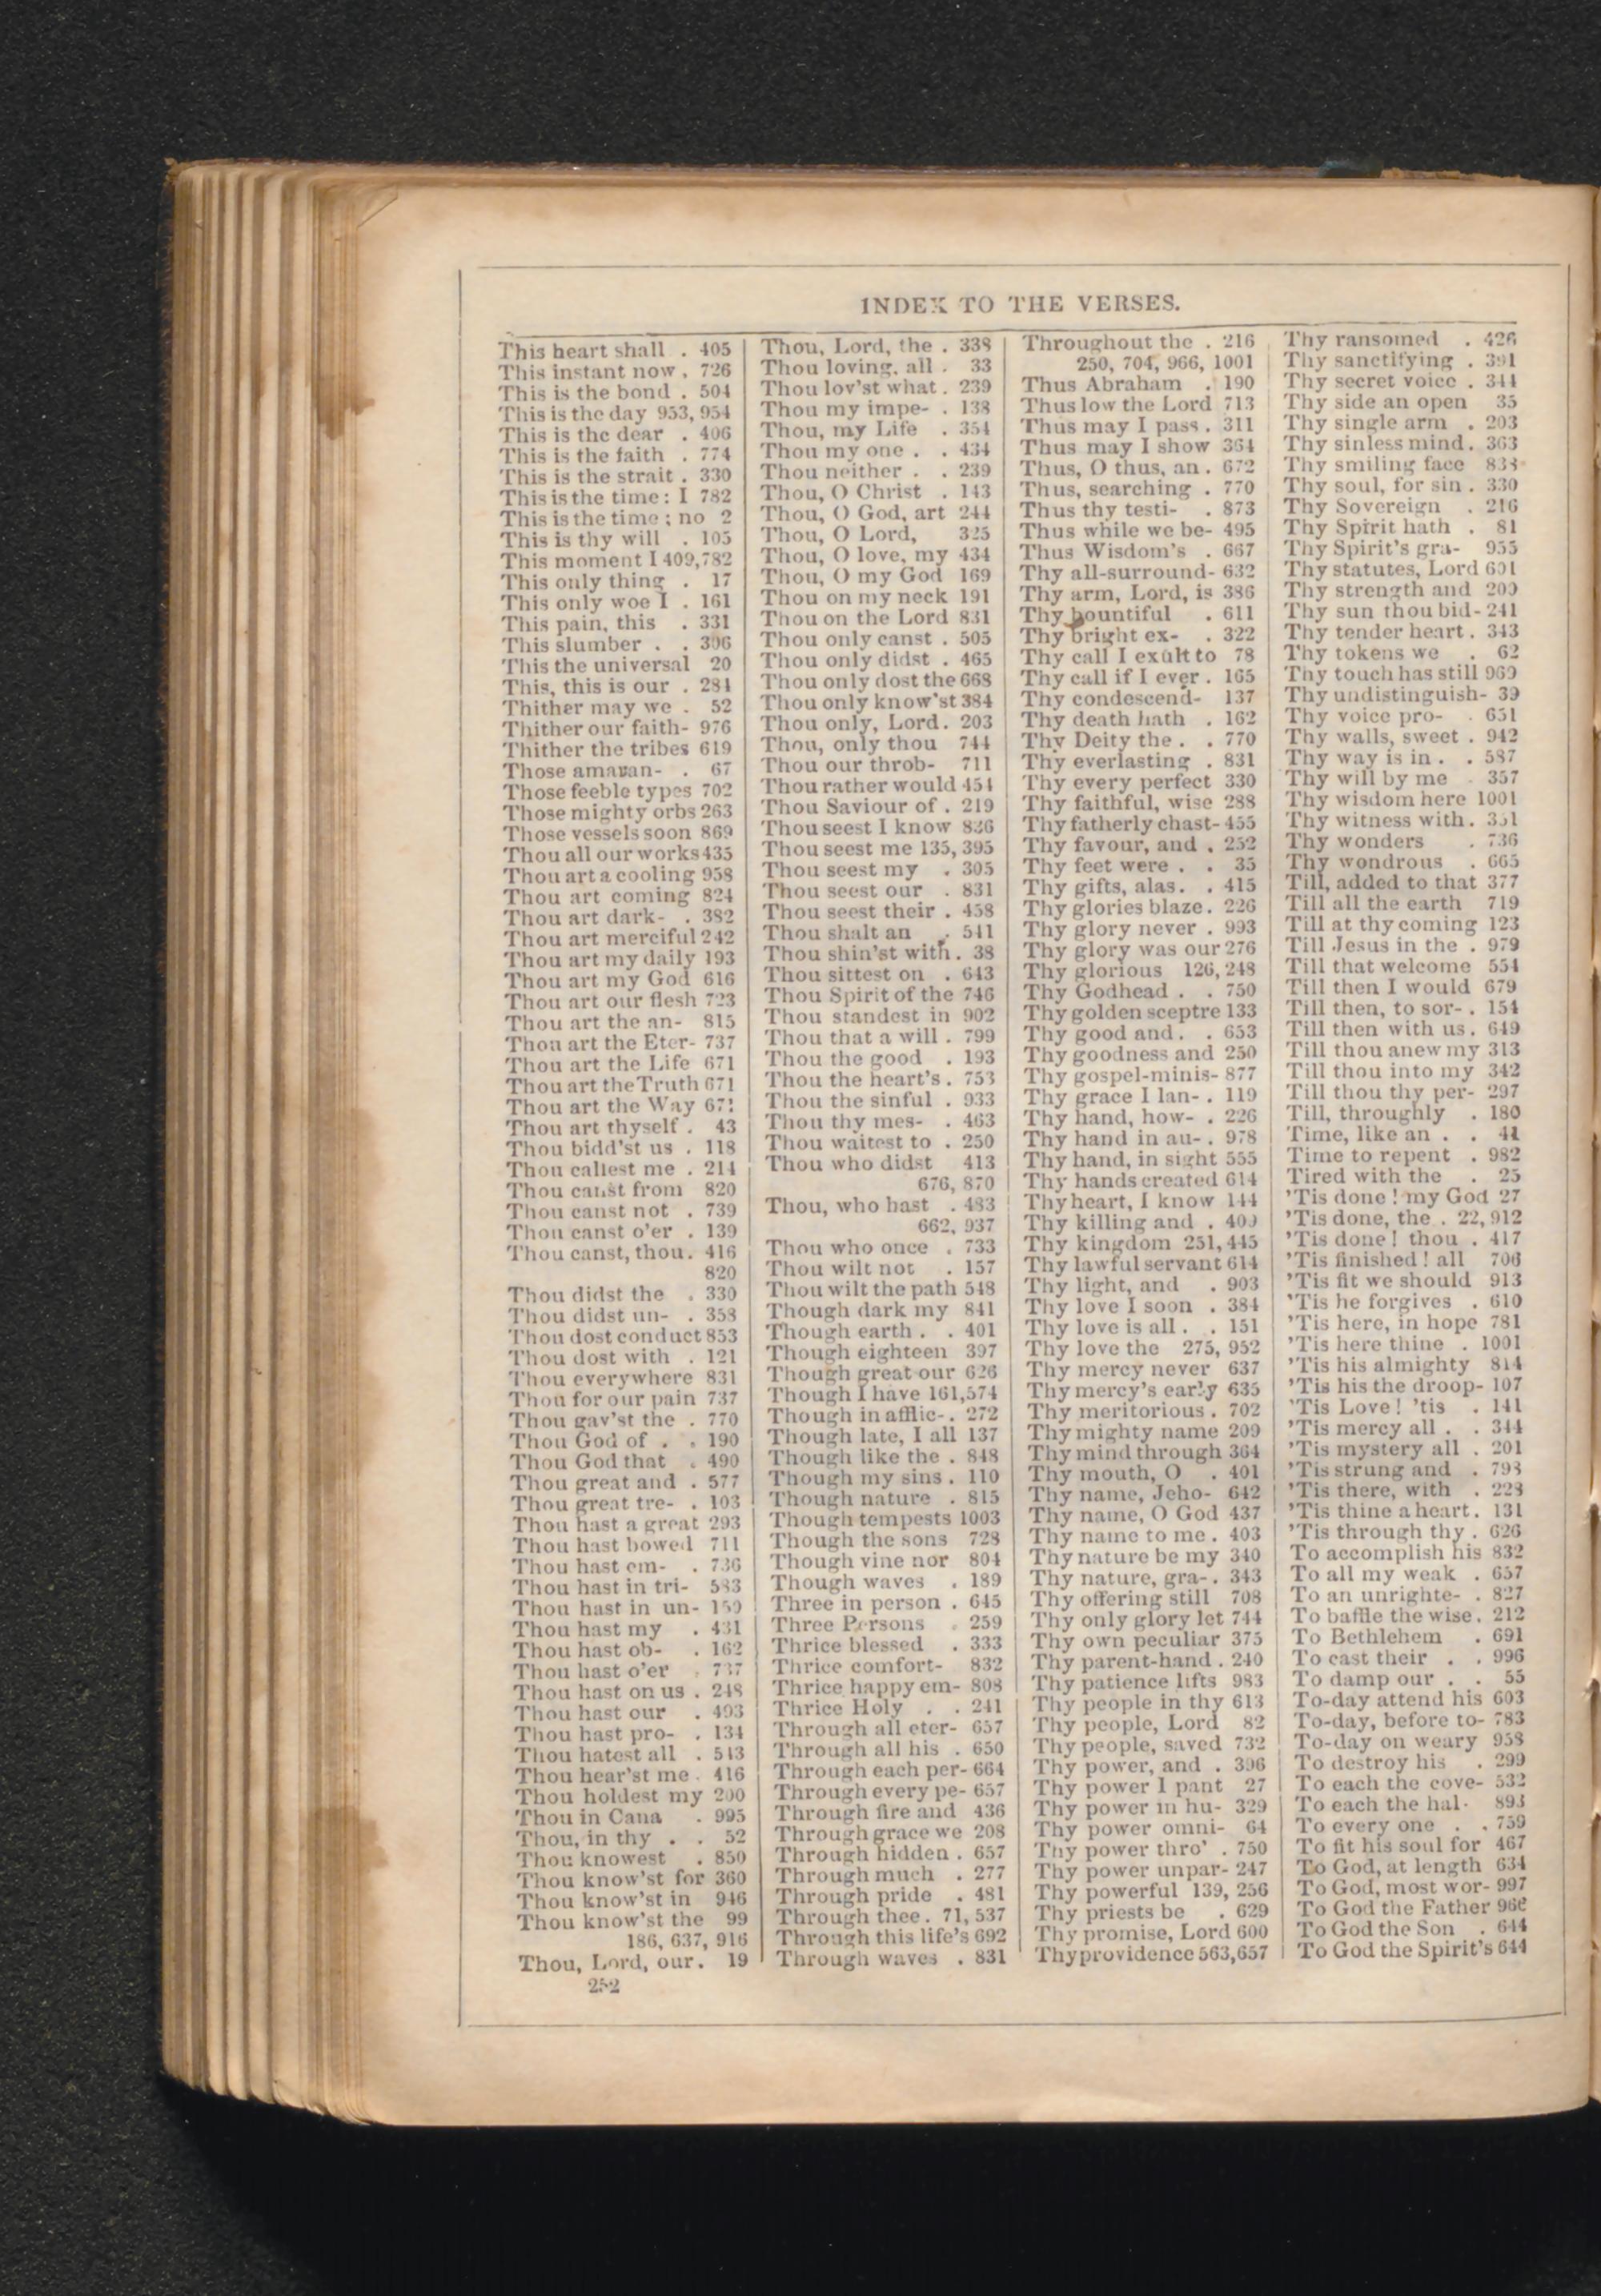 INDEX TO THE VERSES.
This heart shall . 405
This instant now . 726
This is the bond . 504
This is the day 953, 954
This is the dear . 406
This is the faith . 774
This is the strait . 330
This is the time: I 782
This is the time; no 2
This is thy will . 105
This moment I 409,782
This only thing . 17
This only woe I . 161
This pain, this . 331
This slumber . . 306
This the universal 20
This, this is our . 284
Thither may we . 52
Thither our faith- 976
Thither the tribes 619
Those amaran- . 67
Those feeble types 702
Those mighty orbs 263
Those vessels soon 869
Thou all our works 435
Thou art a cooling 958
Thou art coming 824
Thou art dark- . 382
Thou art merciful 242
Thou art my daily 193
Thou art my God 616
Thou art our flesh 723
Thou art the an- 815
Thou art the Eter- 737
Thou art the Life 671
Thou art the Truth 671
Thou art the Way 671
Thou art thyself . 43
Thou bidd'st us . 118
Thou callest me . 214
Thou canst from 820
Thou canst not . 739
Thou canst o'er . 139
Thou canst, thou . 416
820
Thou didst the . 330
Thou didst un- . 358
Thou dost conduct 853
Thou dost with . 121
Thou everywhere 831
Thou for our pain 737
Thou gav'st the . 770
Thou God of . . 190
Thou God that . 490
Thou great and . 577
Thou great tre- . 103
Thou hast a great 293
Thou hast bowed 711
Thou hast em- . 736
Thou hast in tri- 583
Thou hast in un- 159
Thou hast my . 431
Thou hast ob- . 162
Thou hast o'er . 737
Thou hast on us . 248
Thou hast our . 493
Thou hast pro- . 134
Thou hatest all . 513
Thou hear'st me . 416
Thou holdest my 200
Thou in Cana . 995
Thou, in thy . . 52
Thou knowest . 850
Thou know'st for 360
Thou know'st in 946
Thou know'st the 99
186, 637, 916
Thou, Lord, our . 19
252
Thou, Lord, the . 338
Thou loving, all . 33
Thou lov'st what . 239
Thou my impe- . 138
Thou, my Life . 354
Thou my one . . 434
Thou neither . . 239
Thou, O Christ . 143
Thou, O God, art 244
Thou, O Lord, 325
Thou, O love, my 434
Thou, O my God 169
Thou on my neck 191
Thou on the Lord 831
Thou only canst . 505
Thou only didst . 465
Thou only dost the 668
Thou only know'st 384
Thou only, Lord . 203
Thou, only thou 744
Thou our throb- 711
Thou rather would 454
Thou Saviour of . 219
Thou seest I know 826
Thou seest me 135, 395
Thou seest my . 305
Thou seest our . 831
Thou seest their . 458
Thou shalt an . 541
Thou shin'st with . 38
Thou sittest on . 643
Thou Spirit of the 746
Thou standest in 902
Thou that a will . 799
Thou the good . 193
Thou the heart's . 753
Thou the sinful . 933
Thou thy mes- . 463
Thou waitest to . 250
Thou who didst 413
676, 870
Thou, who hast . 483
662, 937
Thou who once . 733
Thou wilt not . 157
Thou wilt the path 548
Though dark my 841
Though earth . . 401
Though eighteen 397
Though great our 626
Though I have 161,574
Though in afflic- . 272
Though late, I all 137
Though like the . 848
Though my sins . 110
Though nature . 815
Though tempests 1003
Though the sons 728
Though vine nor 804
Though waves . 189
Three in person . 645
Three Persons . 259
Thrice blessed . 333
Thrice comfort- 832
Thrice happy em- 808
Thrice Holy . . 241
Through all eter- 657
Through all his . 650
Through each per- 664
Through every pe- 657
Through fire and 436
Through grace we 208
Through hidden . 657
Through much . 277
Through pride . 481
Through thee . 71, 537
Through this life's 692
Through waves . 831
Throughout the . 216
250, 704, 966, 1001
Thus Abraham . 190
Thus low the Lord 713
Thus may I pass . 311
Thus may I show 364
Thus, O thus, an . 672
Thus, searching . 770
Thus thy testi- . 873
Thus while we be- 495
Thus Wisdom's . 667
Thy all-surround- 632
Thy arm, Lord, is 386
Thy bountiful . 611
Thy bright ex- . 322
Thy call I exult to 78
Thy call if I ever . 165
Thy condescend- 137
Thy death hath . 162
Thy Deity the . . 770
Thy everlasting . 831
Thy every perfect 330
Thy faithful, wise 288
Thy fatherly chast- 455
Thy favour, and . 252
Thy feet were . . 35
Thy gifts, alas . . 415
Thy glories blaze . 226
Thy glory never . 993
Thy glory was our 276
Thy glorious 126, 248
Thy Godhead . . 750
Thy golden sceptre 133
Thy good and . . 653
Thy goodness and 250
Thy gospel-minis- 877
Thy grace I lan- . 119
Thy hand, how- . 226
Thy hand in au- . 978
Thy hand, in sight 555
Thy hands created 614
Thy heart, I know 144
Thy killing and . 409
Thy kingdom 251, 445
Thy lawful servant 614
Thy light, and . 903
Thy love I soon . 384
Thy love is all . . 151
Thy love the 275, 952
Thy mercy never 637
Thy mercy's early 635
Thy meritorious . 702
Thy mighty name 209
Thy mind through 364
Thy mouth, O . 401
Thy name, Jeho- 642
Thy name, O God 437
Thy name to me . 403
Thy nature be my 340
Thy nature, gra- . 343
Thy offering still 708
Thy only glory let 744
Thy own peculiar 375
Thy parent-hand . 240
Thy patience lifts 983
Thy people in thy 613
Thy people, Lord 82
Thy people, saved 732
Thy power, and . 396
Thy power I pant 27
Thy power in hu- 329
Thy power omni- 64
Thy power thro' . 750
Thy power unpar- 247
Thy powerful 139, 256
Thy priests be . 629
Thy promise, Lord 600
Thy providence 563,657
Thy ransomed . 426
Thy sanctifying . 391
Thy secret voice . 344
Thy side an open 35
Thy single arm . 203
Thy sinless mind . 363
Thy smiling face 838
Thy soul, for sin . 330
Thy Sovereign . 216
Thy Spirit hath . 81
Thy Spirit's gra- 955
Thy statutes, Lord 601
Thy strength and 209
Thy sun thou bid- 241
Thy tender heart . 343
Thy tokens we . 62
Thy touch has still 969
Thy undistinguish- 39
Thy voice pro- . 651
Thy walls, sweet . 942
Thy way is in . . 587
Thy will by me . 357
Thy wisdom here 1001
Thy witness with . 351
Thy wonders . 736
Thy wondrous . 665
Till, added to that 377
Till all the earth 719
Till at thy coming 123
Till Jesus in the . 979
Till that welcome 554
Till then I would 679
Till then, to sor- . 154
Till then with us . 649
Till thou anew my 313
Till thou into my 342
Till thou thy per- 297
Till, throughly . 180
Time, like an . . 41
Time to repent . 982
Tired with the . 25
'Tis done! my God 27
'Tis done, the . 22, 912
'Tis done! thou . 417
'Tis finished! all 706
'Tis fit we should 913
'Tis he forgives . 610
'Tis here, in hope 781
'Tis here thine . 1001
'Tis his almighty 814
'Tis his the droop- 107
'Tis Love! 'tis . 141
'Tis mercy all . . 344
'Tis mystery all . 201
'Tis strung and . 798
'Tis there, with . 228
'Tis thine a heart . 131
'Tis through thy . 626
To accomplish his 832
To all my weak . 657
To an unrighte- . 827
To baffle the wise . 212
To Bethlehem . 691
To cast their . . 996
To damp our . . 55
To-day attend his 603
To-day, before to- 783
To-day on weary 958
To destroy his . 299
To each the cove- 532
To each the hal- 893
To every one . . 759
To fit his soul for 467
To God, at length 634
To God, most wor- 997
To God the Father 966
To God the Son . 644
To God the Spirit's 644